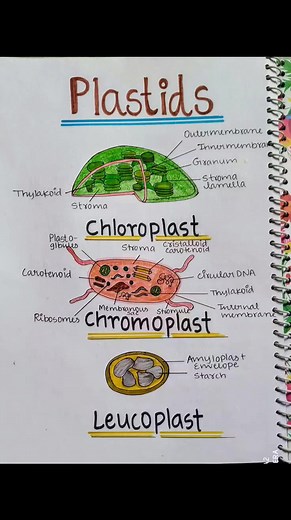 Plastids
Outermembrane
Innermembra
Granum
Stroma
lamella
Thylakoid
Stroma
Chloroplast
Plasto-
globules
Stroma
Cristalloid
carotenoid
Carotenoid
Circular DNA
Thylakoid
Internal
membrane
Ribosomes
Membranous
sac
Stromule
Chromoplast
Amyloplast
Envelope
Starch
Leucoplast